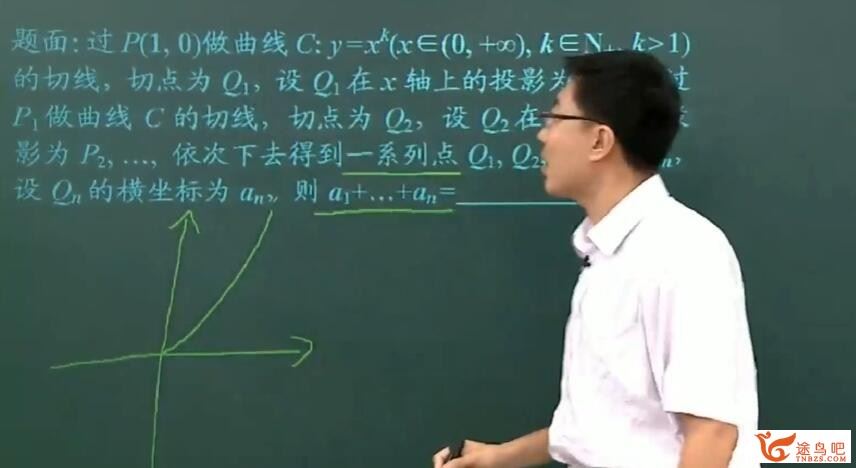 题面: 过 P(1, 0)做曲线 C: y=xᵏ(x∈(0, +∞), k∈N₊, k>1)
的切线, 切点为 Q₁, 设 Q₁在 x 轴上的投影为 过
P₁做曲线 C 的切线, 切点为 Q₂, 设 Q₂在
影为 P₂, …, 依次下去得到一系列点 Q₁, Q₂, n,
设 Qₙ的横坐标为 aₙ, 则 a₁+…+aₙ=
途鸟吧
TNBZS.COM